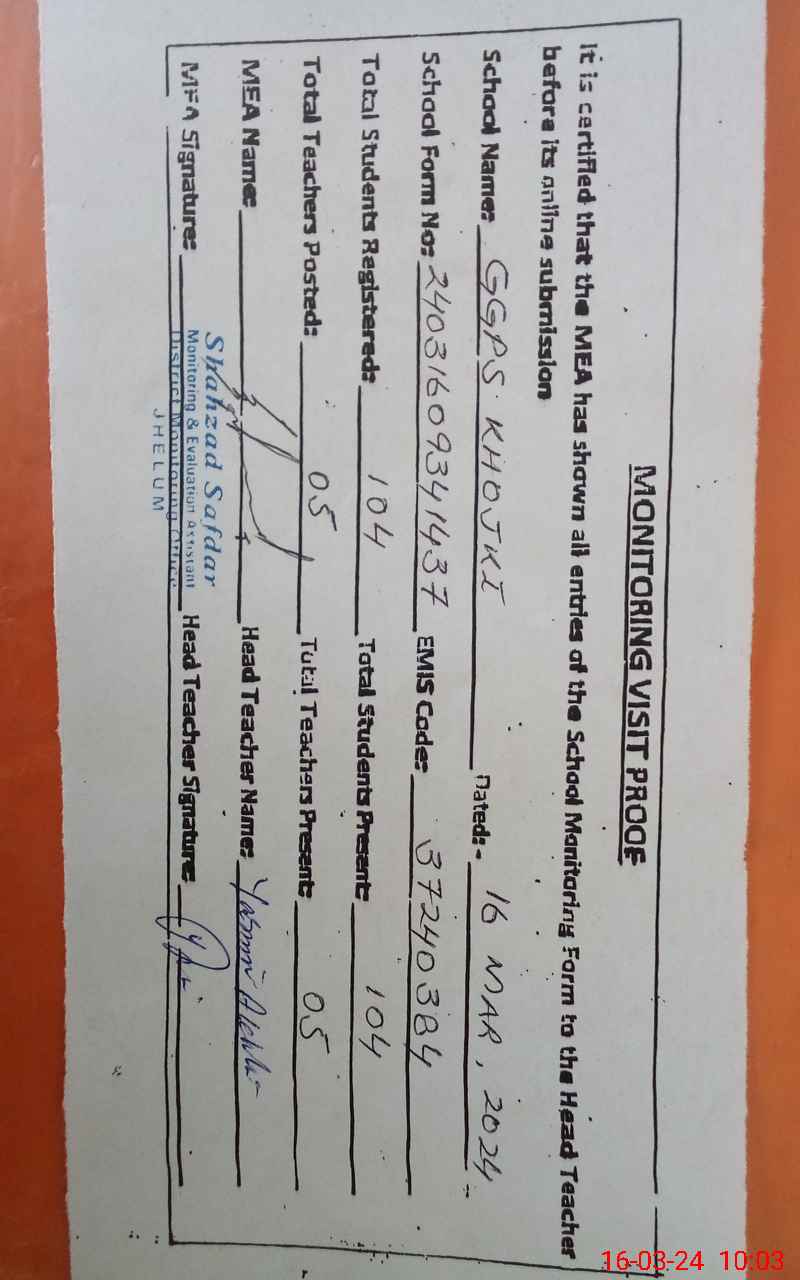 MONITORING VISIT PROOF
It is certified that the MEA has shown all entries of the School Monitoring Form to the Head Teacher
before its online submission
School Name: GGPS KHOJKI Dated:- 16 MAR, 2024
School Form No: 24031609341437 EMIS Code: 37240384
Total Students Registered: 104 Total Students Present: 104
Total Teachers Posted: 05 Total Teachers Present: 05
MEA Name: Head Teacher Name: Yasmin
MEA Signature: Head Teacher Signature:
Shahzad Safdar
Monitoring & Evaluation Assistant
District Monitoring Office
JHELUM
16-03-24 10:03